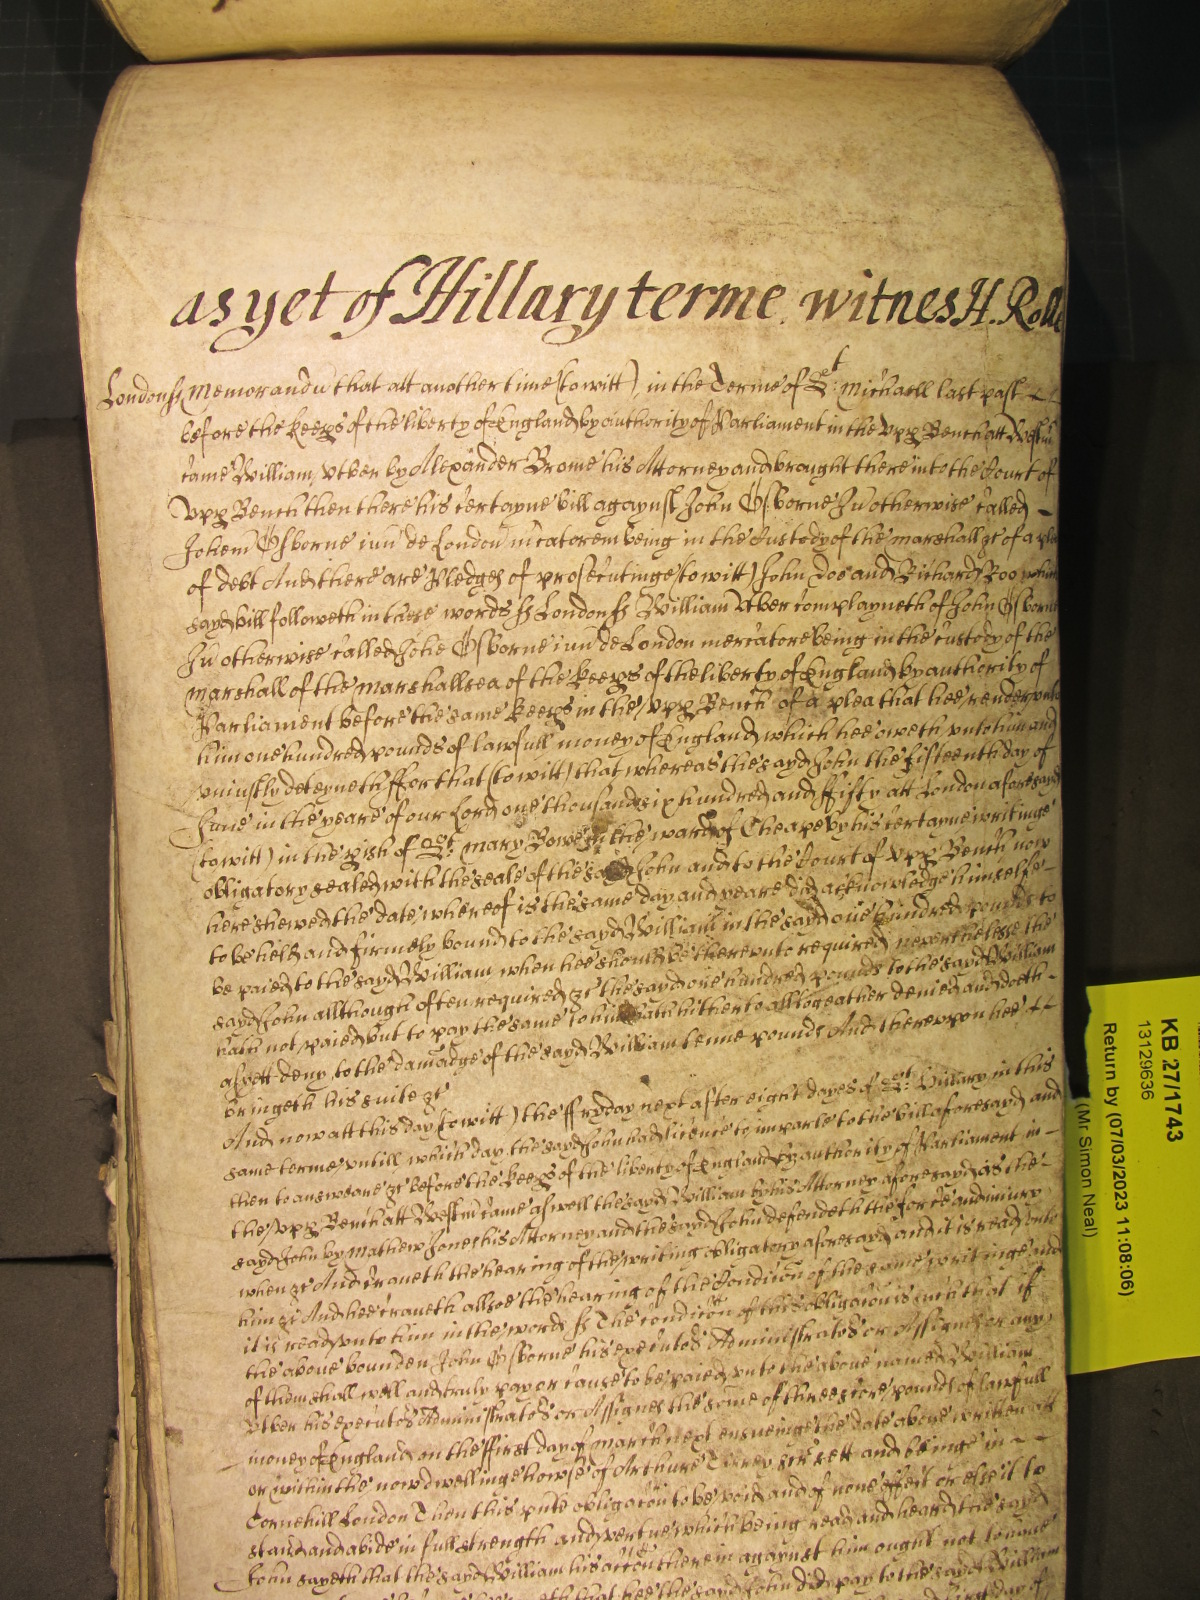 as yet of Hillary terme. witnes H. Rolle
London ss Memorandu that att another time (to witt) in the Terme of St: Michaell last past
before the keeps of the liberty of England by authority of Parliament in the Upp Bench att Westm
came William Utber by Alexander Brome his Attorney and brought there into the Court of
Upp Bench then there his certayne bill agaynst John Osborne Ju otherwise called
Johem Osborne iun de London mcatorem being in the Custody of the marshall &c of a plea
of debt And there are Pledges of prosecutinge (to witt) John Doe and Richard Roo which
sayd bill followeth in these words ss London ss William Utber complayneth of John Osborne
Ju otherwise called Johe Osborne iun de London mercatore being in the custody of the
marshall of the marshallsea of the keeps of the liberty of England by authority of
Parliament before the same keeps in the Upp Bench of a plea that hee render unto
him one hundred pounds of lawfull money of England which hee oweth unto him and
uniustly deteyneth ffor that (to witt) that whereas the sayd John the fifteenth day of
June in the yeare of our Lord one thousand six hundred and ffifty att London aforesayd
(to witt) in the pish of St: Mary Bowe in the ward of Cheape by his certayne writinge
obligatory sealed with the seale of the sayd John and to the Court of Upp Bench now
here shewed the date whereof is the same day and yeare did acknowledge himselfe
to be held and firmely bound to the sayd William in the sayd one hundred pounds to
be paied to the sayd William when hee should be thereunto required neverthelesse the
sayd John allthough often required &c the sayd one hundred pounds to the sayd William
hath not paied but to pay the same to him hath hitherto alltogeather denied and doeth
as yett deny, to the damadge of the sayd William tenne pounds And thereupon hee
bringeth his suite &c
And now att this day (to witt) the ffryday next after eight dayes of St: Hillary in this
same terme untill which day the sayd John had licence to imparle to the bill aforesayd and
then to answeare &c before the keeps of the liberty of England by authority of Parliament in
the Upp Bench att Westm came aswell the sayd William by his Attorney aforesayd as the
sayd John by Mathew Jones his Attorney and the sayd John defendeth the force and iniury
when &c And craveth the hearing of the writing obligatory aforesayd and it is read unto
him &c And hee craveth allsoe the hearing of the Condicon of the same writinge and
it is read unto him in these words ss The condicon of this obligacon is such that if
the above bounden John Osborne his executos Administratos or Assignes or any
of them shall well and truly pay or cause to be paied unto the above named William
Utber his executos Administratos or Assignes the some of threescore pounds of lawfull
money of England on the ffirst day of March next ensueinge the date above written att
or within the now dwellinge howse of Arthure sett and beinge in
Cornehill London Then this psnte obligacon to be void and of none effect or else it to
stand and abide in full strength and vertue which being read and heard the sayd
John sayeth that the sayd William his accon therein agaynst him ought not to have
that hee the sayd John did pay to the sayd William
KB 27/1743
13129636
Return by (07/03/2023 11:08:06)
(Mr Simon Neal)